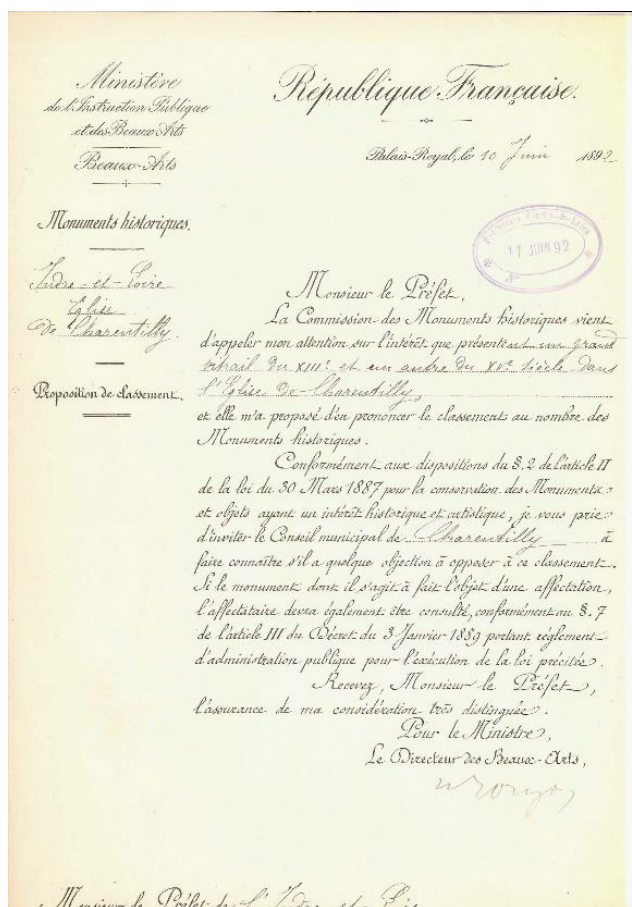 Ministère
de l'Instruction Publique
et des Beaux-Arts
Beaux-Arts
Monuments historiques.
Indre-et-Loire
Eglise
de Charentilly.
Proposition de classement.
République Française.
Palais-Royal, le 10 Juin 1892
11 JUIN 92
Monsieur le Préfet,
La Commission des Monuments historiques vient
d'appeler mon attention sur l'intérêt que présentent un grand
vitrail du XIIIe et un autre du XVe siècle dans
l'Eglise de Charentilly,
et elle m'a proposé d'en prononcer le classement au nombre des
Monuments historiques.
Conformément aux dispositions du §. 2 de l'article II
de la loi du 30 Mars 1887 pour la conservation des Monuments
et objets ayant un intérêt historique et artistique, je vous prie
d'inviter le Conseil municipal de Charentilly à
faire connaître s'il a quelque objection à opposer à ce classement.
Si le monument dont il s'agit à fait l'objet d'une affectation,
l'affectataire devra également être consulté, conformément au §. 7
de l'article III du Décret du 3 Janvier 1889 portant règlement
d'administration publique pour l'exécution de la loi précitée.
Recevez, Monsieur le Préfet,
l'assurance de ma considération très distinguée.
Pour le Ministre,
Le Directeur des Beaux-Arts,
Monsieur le Préfet de l'Indre-et-Loire